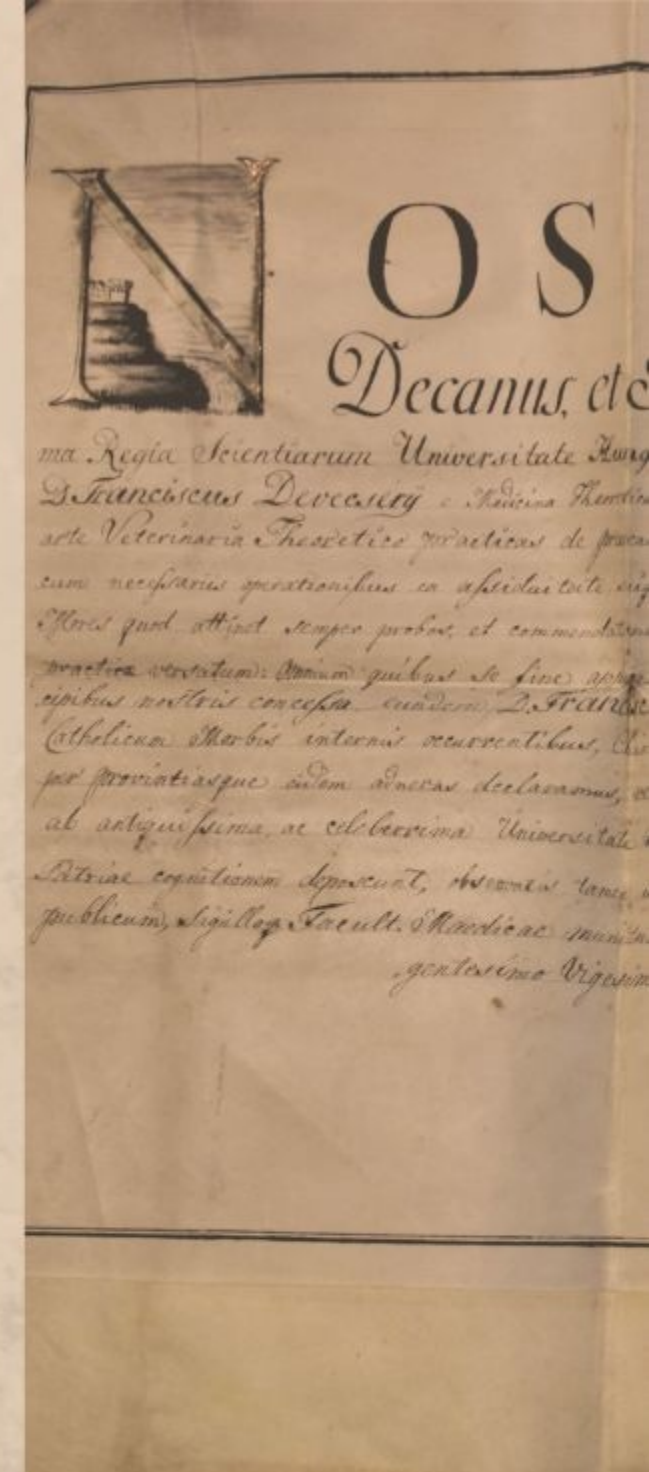 NOS
Decanus, et
ma Regia Scientiarum Universitate Hung
D. Franciscus Devecsery e Medicina Theoretica
arte Veterinaria Theoretico practicas de
cum necessariis operationibus ea assiduitate
Mores quod attinet semper probos, et commendatum
practice versatum: Omnium quibus se fine
cipibus nostris concessa eundem D. Francis
Catholicum Morbis internis occurrentibus,
per provintiasque eidem adnexas declaramus,
ab antiquissima, ac celeberrima Universitate
Patriae cognitionem deposcunt, observatis tamen
publicum, Sigilloq Facult. Maedicae munitu
gentesimo Vigesim